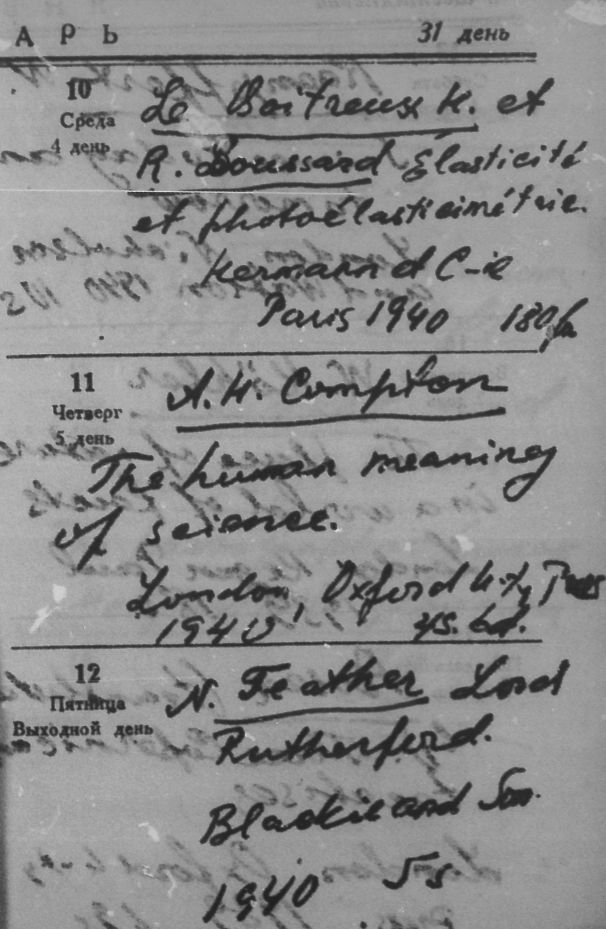 АРЬ 31 день
10
Среда
4 день
Le Boiteux H. et
R. Boussard Élasticité
et photoélasticimétrie.
Hermann et C-ie
Paris 1940 180 fr
11
Четверг
5 день
A. H. Compton
The human meaning
of science.
London, Oxford U-ty Press
1940 4s. 6d.
12
Пятница
Выходной день
N. Feather Lord
Rutherford.
Blackie and Son.
1940 5s